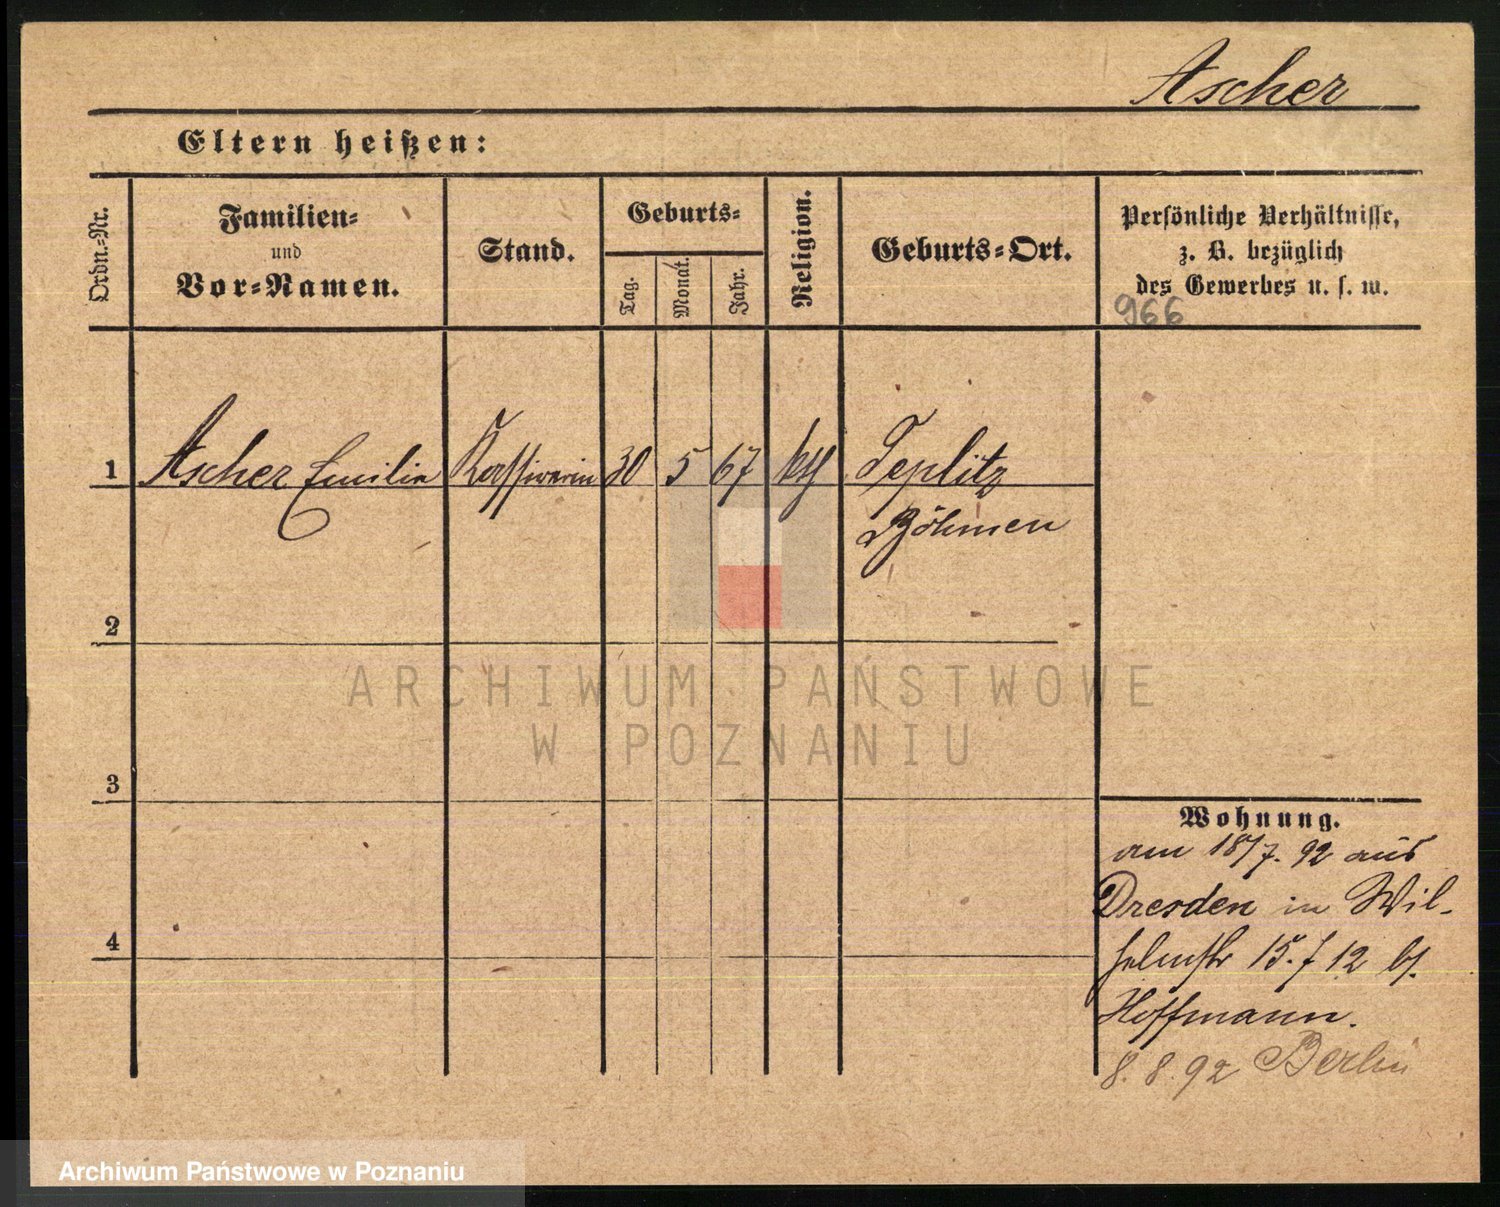 Ascher
Eltern heißen:
Ordn.-Nr.
Familien-
und
Vor-Namen.
Stand.
Geburts-
Tag.
Monat.
Jahr.
Religion.
Geburts-Ort.
Persönliche Verhältnisse,
z. B. bezüglich
des Gewerbes u. s. w.
966
1 Ascher Emilie Kassirerin 30 5 67 kth Teplitz
Böhmen
2
3
4
Wohnung.
am 18/7. 92 aus
Dresden in Wil-
helmstr 15. f 12 bf.
Hoffmann.
8. 8. 92 Berlin
ARCHIWUM PAŃSTWOWE
W POZNANIU
Archiwum Państwowe w Poznaniu